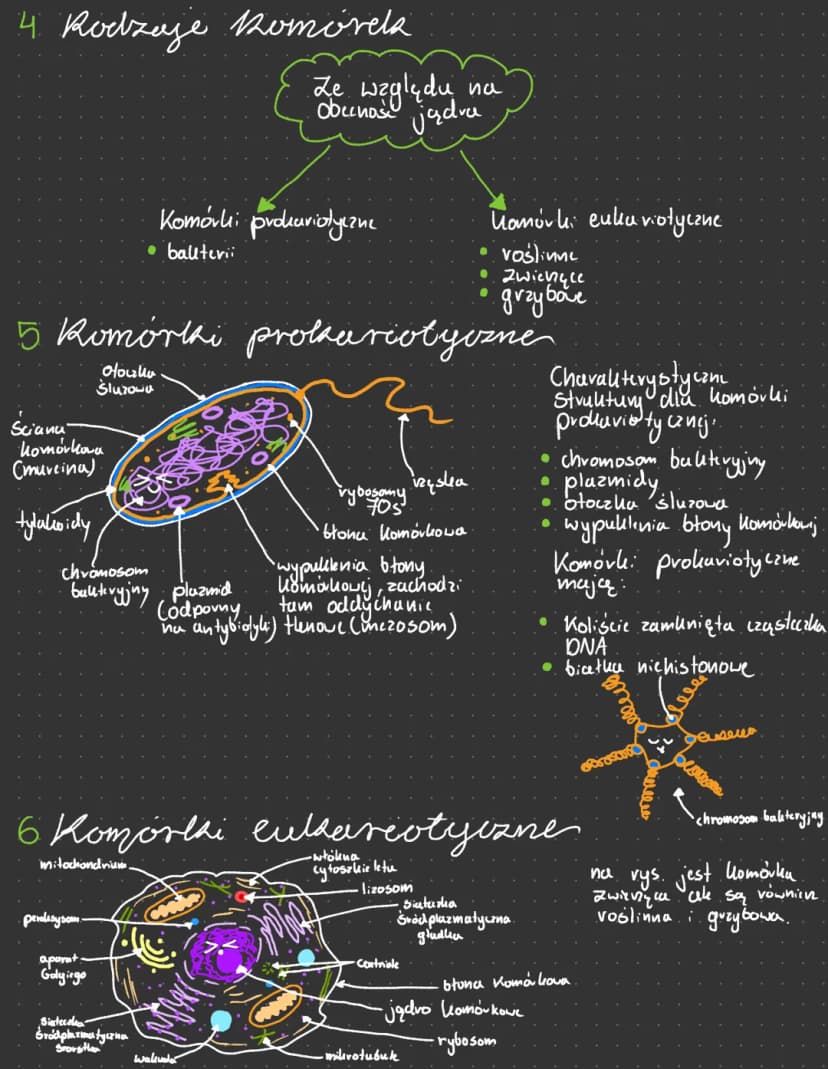 4 Rodzaje komórek
Ze względu na
obecność jądra
Komórki prokariotyczne
• bakterii
Komórki eukariotyczne
• roślinne
• zwierzęce
• grzybowe
5 Komórki prokariotyczne
otoczka
śluzowa
Ściana
komórkowa
(mureina)
tylakoidy
chromosom
bakteryjny
plazmid
(odporny
na antybiotyki)
wypuklenia błony
komórkowej, zachodzi
tam oddychanie
tlenowe (mezosom)
błona komórkowa
rybosomy
70s
rzęska
Charakterystyczne
struktury dla komórki
prokariotycznej:
• chromosom bakteryjny
• plazmidy
• otoczka śluzowa
• wypuklenia błony komórkowej
Komórki prokariotyczne
mają:
• koliście zamknięta cząsteczka
DNA
• białka niehistonowe
chromosom bakteryjny
6 Komórki eukariotyczne
mitochondrium
peroksysom
aparat
Golgiego
siateczka
śródplazmatyczna
szorstka
wakuola
włókna
cytoszkieletu
lizosom
siateczka
śródplazmatyczna
gładka
centriole
błona komórkowa
jądro komórkowe
rybosom
mikrotubule
na rys. jest komórka
zwierzęca ale są również
roślinna i grzybowa.